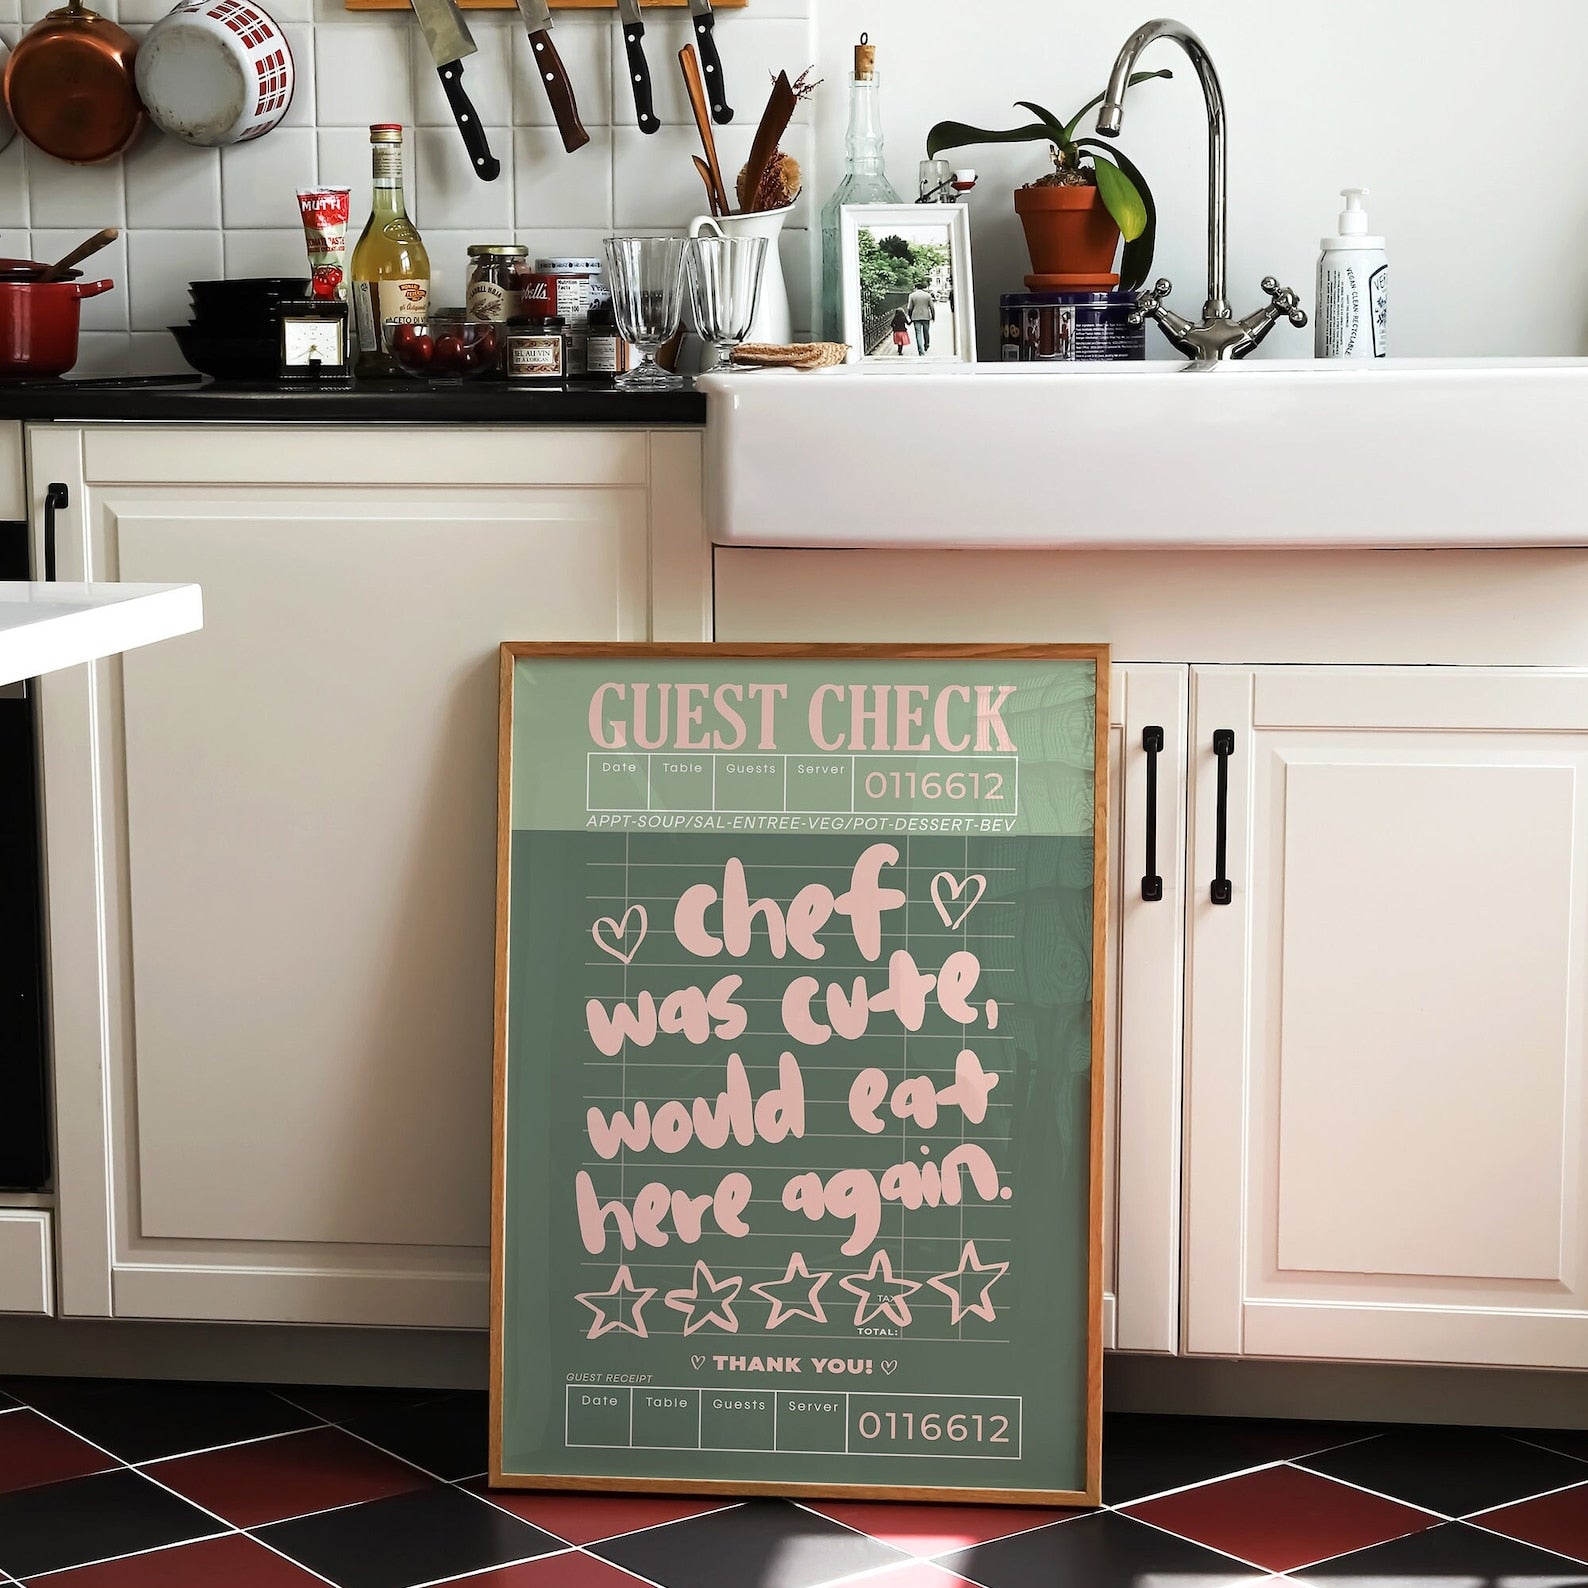 MUTTI
SEL AU VIN
VEGAN CLEAN RECYCLABLE
GUEST CHECK
Date Table Guests Server 0116612
APPT-SOUP/SAL-ENTREE-VEG/POT-DESSERT-BEV
chef
was cute,
would eat
here again.
TAX
TOTAL:
THANK YOU!
GUEST RECEIPT
Date Table Guests Server 0116612